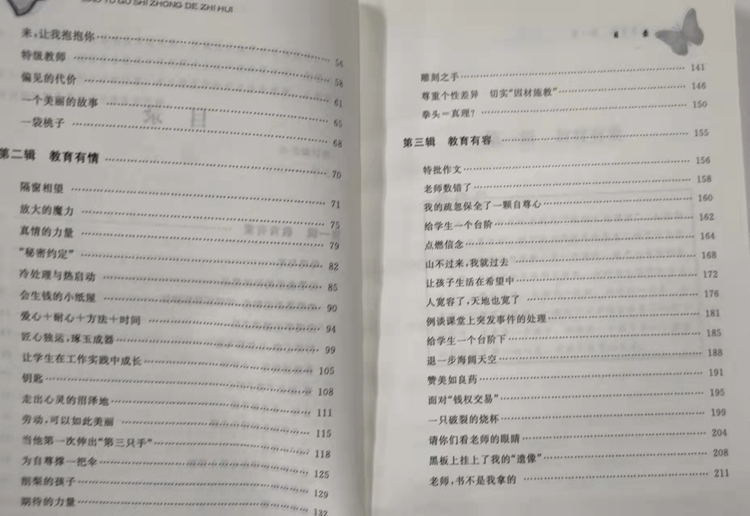 JIAO YU GU SHI ZHONG DE ZHI HUI
来,让我抱抱你 54
特级教师 58
偏见的代价 61
一个美丽的故事 65
一袋桃子 68
第二辑 教育有情 70
隔窗相望 71
放大的魔力 75
真情的力量 79
“秘密约定” 82
冷处理与热启动 85
会生钱的小纸屋 90
爱心+耐心+方法+时间 94
匠心独运,琢玉成器 99
让学生在工作实践中成长 105
钥匙 108
走出心灵的沼泽地 111
劳动,可以如此美丽 115
当他第一次伸出“第三只手” 118
为自尊撑一把伞 125
削梨的孩子 129
期待的力量 132
目 录
雕刻之手 141
尊重个性差异 切实“因材施教” 146
拳头=真理? 150
第三辑 教育有容 155
特批作文 156
老师数错了 158
我的疏忽保全了一颗自尊心 160
给学生一个台阶 162
点燃信念 164
山不过来,我就过去 168
让孩子生活在希望中 172
人宽容了,天地也宽了 176
例谈课堂上突发事件的处理 181
给学生一个台阶下 185
退一步海阔天空 188
赞美如良药 191
面对“钱权交易” 195
一只破裂的烧杯 199
请你们看老师的眼睛 204
黑板上挂上了我的“遗像” 208
老师,书不是我拿的 211